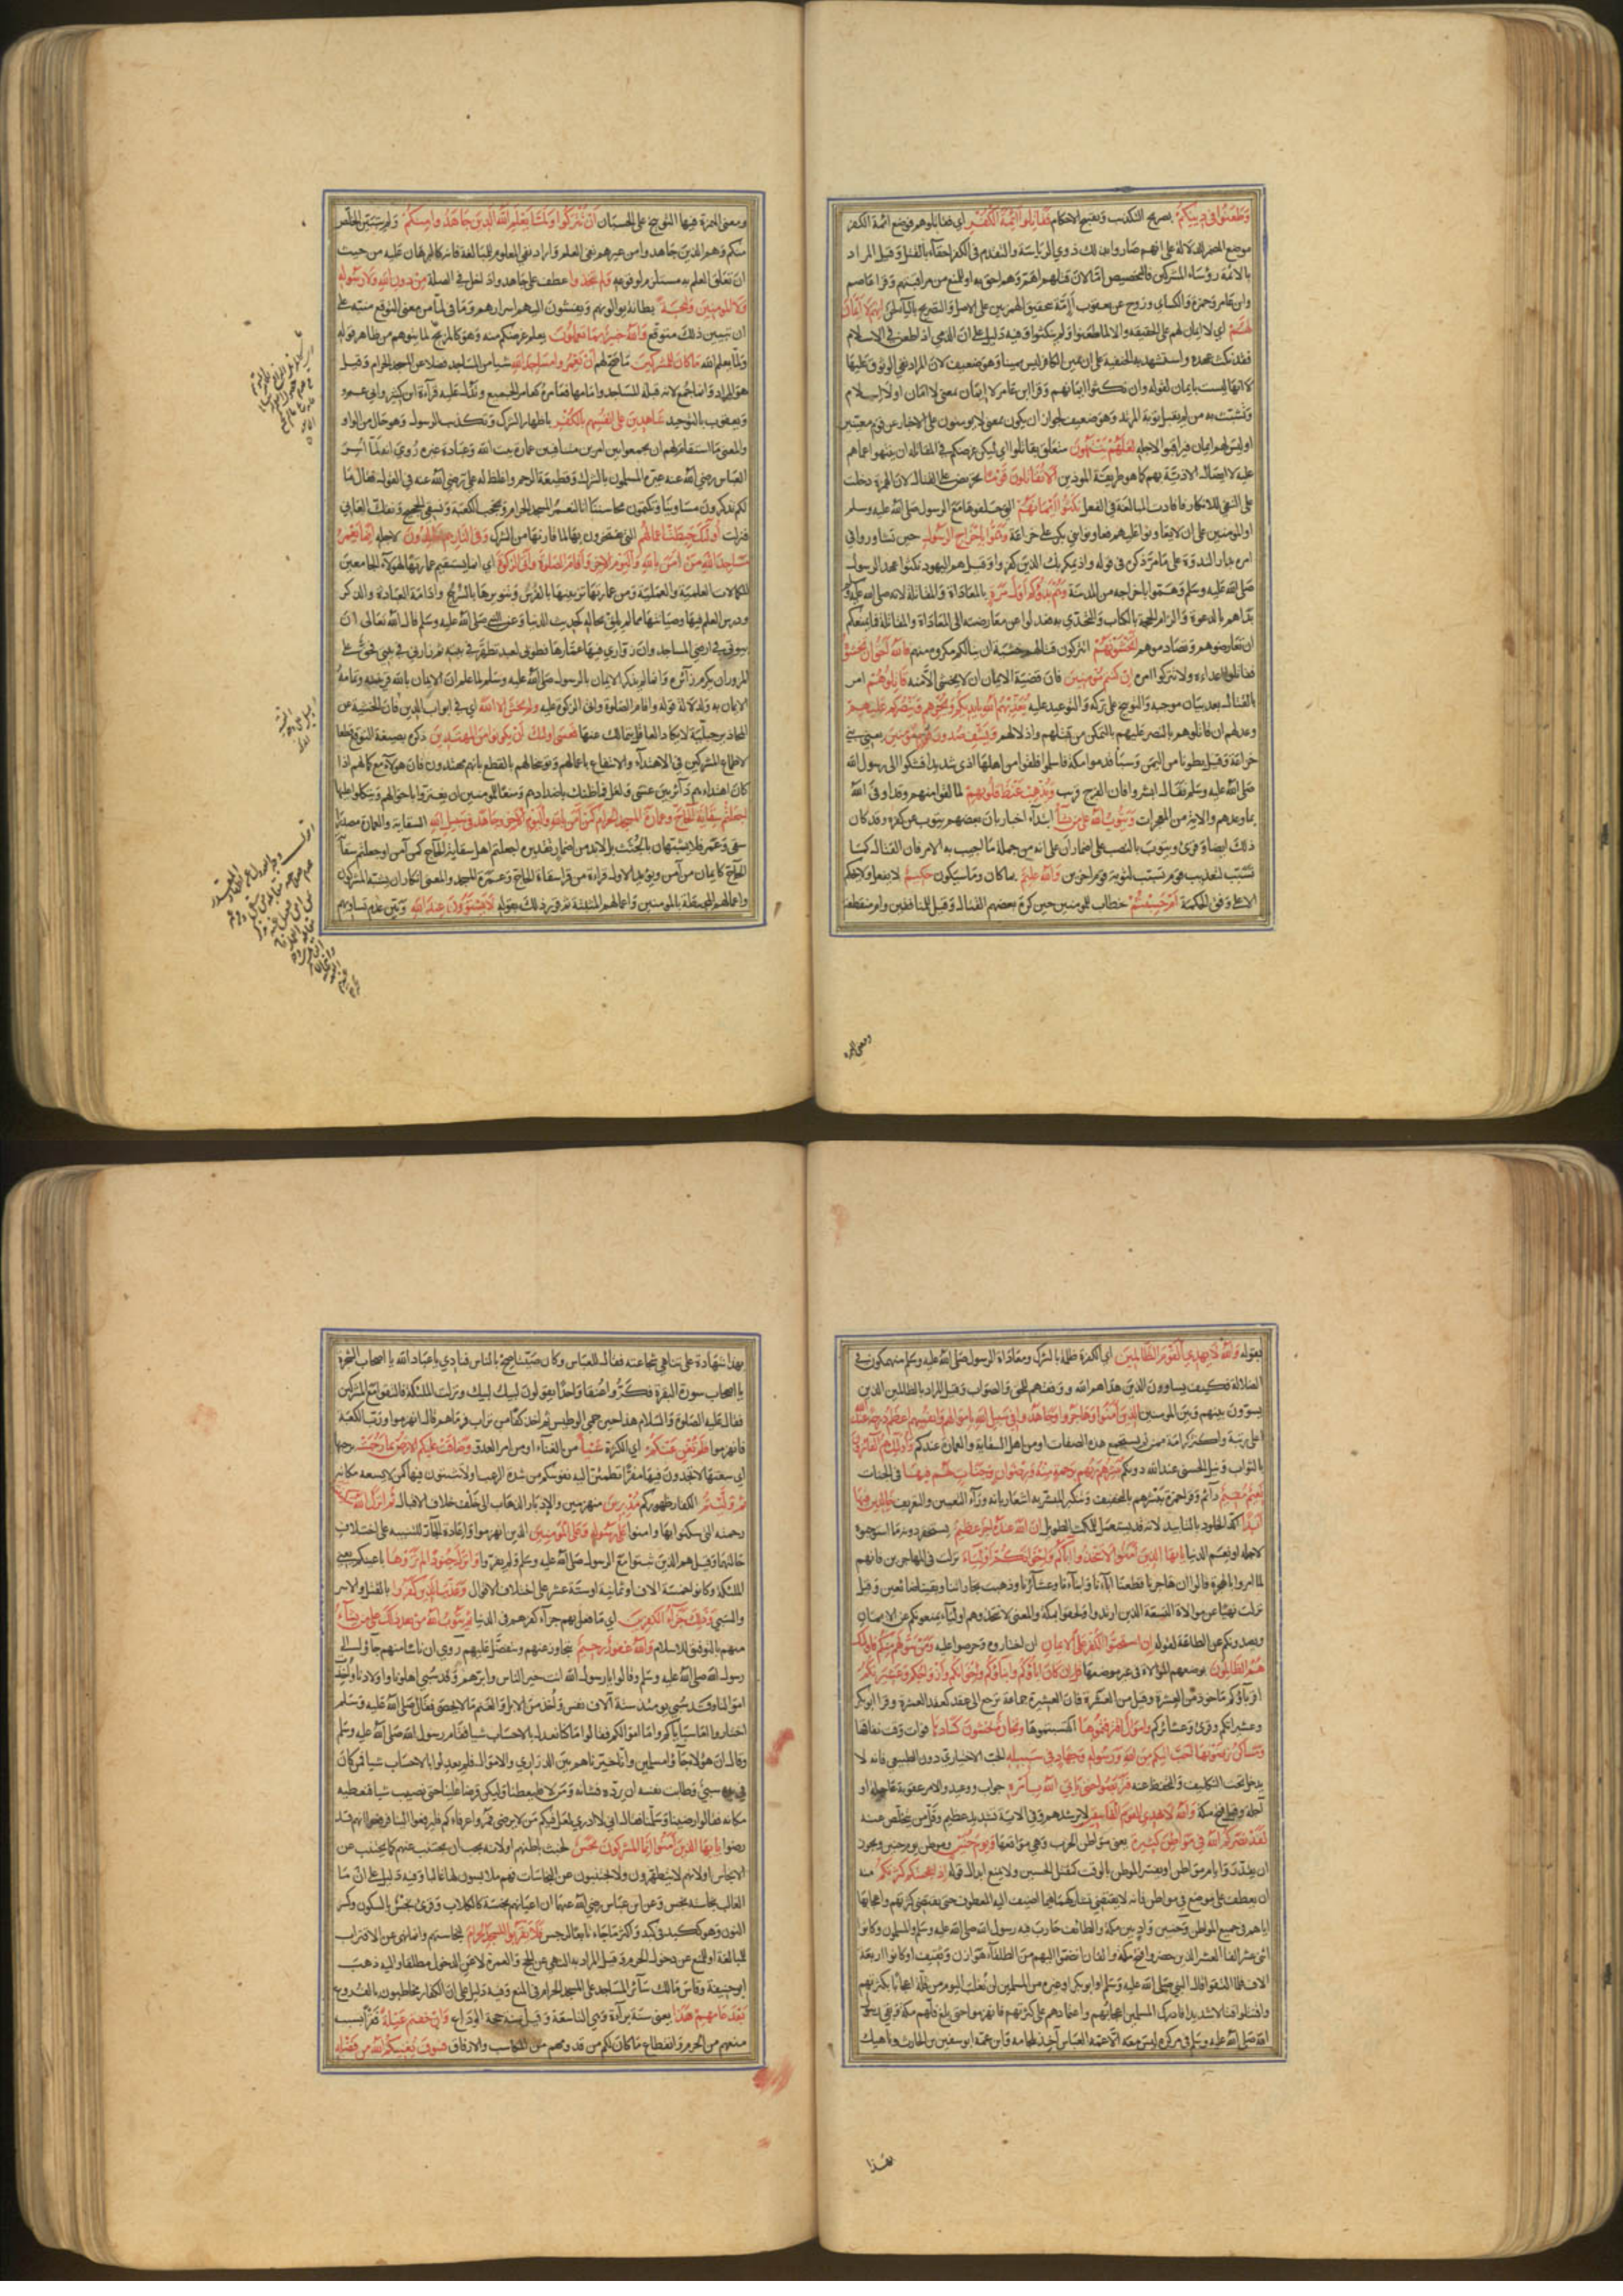 وَطَعَنُوا فِي دِينِكُمْ بصريح التكذيب وتقبيح الاحكام فَقَاتِلُوا أَئِمَّةَ الْكُفْرِ اي فقاتلوهم فوضع ائمة الكفر
موضع الضمير للدلالة على انهم صاروا بذلك ذوي الرياسة والتقدم في الكفر احقاء بالقتل وقيل المراد
بالائمة رؤساء المشركين فالتخصيص اما لان قتلهم اهم وهم احق به او للمنع من مراقبتهم وقرا عاصم
وابن عامر وحمزة والكسائي وروح عن يعقوب أَئِمَّة بتحقيق الهمزتين على الاصل والتصريح بالياء لحن إنهم لا أيمان
لَهُمْ اي لا ايمان لهم على الحقيقة والا لما طعنوا ولم ينكثوا وفيه دليل على ان الذمي اذا طعن في الاسلام
فقد نكث عهده واستشهد به الحنفية على ان يمين الكافر ليس يمينا وهو ضعيف لان المراد نفي الوثوق عليها
لا انها ليست بايمان لقوله وان نكثوا ايمانهم وقرا ابن عامر لا إيمان بمعنى لا امان او لا اسلام
وتشبث به من لم يقبل توبة المرتد وهو ضعيف لجواز ان يكون بمعنى لا يؤمنون على الاخبار عن قوم معينين
او ليس لهم ايمان فيراقبوا لاجله لَعَلَّهُمْ يَنْتَهُونَ متعلق بقاتلوا اي ليكن غرضكم في المقاتلة ان ينتهوا عما هم
عليه لا ايصال الاذية بهم كما هو طريقة الموذين أَلَا تُقَاتِلُونَ قَوْمًا تحريض على القتال لان الهمزة دخلت
على النفي للانكار فافادت المبالغة في الفعل نَكَثُوا أَيْمَانَهُمْ التي حلفوها مع الرسول صلى الله عليه وسلم
او المؤمنين على ان لا يعاونوا عليهم فعاونوا بني بكر على خزاعة وَهَمُّوا بِإِخْرَاجِ الرَّسُولِ حين تشاوروا في
امره بدار الندوة على ما مر ذكره في قوله واذ يمكر بك الذين كفروا وقيل هم اليهود نكثوا عهد الرسول
صلى الله عليه وسلم وهموا باخراجه من المدينة وَهُمْ بَدَؤُكُمْ أَوَّلَ مَرَّةٍ بالمعاداة والمقاتلة لانه صلى الله عليه وسلم
بداهم بالدعوة والزام الحجة بالكتاب والتحدي به فعدلوا عن معارضته الى المعاداة والمقاتلة فما يمنعكم
ان تعارضوهم وتصادموهم أَتَخْشَوْنَهُمْ اتتركون قتالهم خشية ان ينالكم مكروه منهم فَاللَّهُ أَحَقُّ أَنْ تَخْشَوْهُ
فقاتلوا اعداءه ولا تتركوا امره إِنْ كُنْتُمْ مُؤْمِنِينَ فان قضية الايمان ان لا يخشى الا منه قَاتِلُوهُمْ امر
بالقتال بعد بيان موجبه والتوبيخ على تركه والتوعيد عليه يُعَذِّبْهُمُ اللَّهُ بِأَيْدِيكُمْ وَيُخْزِهِمْ وَيَنْصُرْكُمْ عَلَيْهِمْ
وعد لهم ان قاتلوهم بالنصر عليهم بالتمكن من قتلهم واذلالهم وَيَشْفِ صُدُورَ قَوْمٍ مُؤْمِنِينَ يعني بني
خزاعة وقيل بطونا من اليمن وسبأ قدموا مكة فاسلموا فلقوا من اهلها اذى شديدا فشكوا الى رسول الله
صلى الله عليه وسلم فقال ابشروا فان الفرج قريب وَيُذْهِبْ غَيْظَ قُلُوبِهِمْ لما لقوا منهم وقد اوفى الله
بما وعدهم والاية من المعجزات وَيَتُوبُ اللَّهُ عَلَى مَنْ يَشَاءُ ابتداء اخبار بان بعضهم يتوب عن كفره وقد كان
ذلك ايضا وقرئ ويتوبَ بالنصب على اضمار ان على انه من جملة ما اجيب به الامر فان القتال كما
تسبب لتعذيب قوم تسبب لتوبة قوم اخرين وَاللَّهُ عَلِيمٌ بما كان وما سيكون حَكِيمٌ لا يفعل ولا يحكم
الا على وفق الحكمة أَمْ حَسِبْتُمْ خطاب للمؤمنين حين كره بعضهم القتال وقيل للمنافقين وام منقطعة
ومعنى الهمزة
ومعنى الهمزة فيها التوبيخ على الحسبان أَنْ تُتْرَكُوا وَلَمَّا يَعْلَمِ اللَّهُ الَّذِينَ جَاهَدُوا مِنْكُمْ ولم يتبين الخلص
منكم وهم الذين جاهدوا من غيرهم نفى العلم واراد نفي المعلوم للمبالغة فانه كالبرهان عليه من حيث
ان تعلق العلم به مستلزم لوقوعه وَلَمْ يَتَّخِذُوا عطف على جاهدوا داخل في الصلة مِنْ دُونِ اللَّهِ وَلَا رَسُولِهِ
وَلَا الْمُؤْمِنِينَ وَلِيجَةً بطانة يوالونهم ويفشون اليهم اسرارهم وما في لما من معنى التوقع منبه على
ان تبيين ذلك متوقع وَاللَّهُ خَبِيرٌ بِمَا تَعْمَلُونَ يعلم غرضكم منه وهو كالمزيح لما يتوهم من ظاهر قوله
ولما يعلم الله مَا كَانَ لِلْمُشْرِكِينَ ما صح لهم أَنْ يَعْمُرُوا مَسَاجِدَ اللَّهِ شيا من المساجد فضلا عن المسجد الحرام وقيل
هو المراد وانما جمع لانه قبلة المساجد وامامها فعامره كعامر الجميع ويدل عليه قراءة ابن كثير وابي عمرو
ويعقوب بالتوحيد شَاهِدِينَ عَلَى أَنْفُسِهِمْ بِالْكُفْرِ باظهار الشرك وتكذيب الرسول وهو حال من الواو
والمعنى ما استقام لهم ان يجمعوا بين امرين متنافيين عمارة بيت الله وعبادة غيره رُوي انه لما اُسر
العباس رضي الله عنه عيره المسلمون بالشرك وقطيعة الرحم واغلظ له علي رضي الله عنه في القول فقال ما
لكم تذكرون مساوينا وتكتمون محاسننا انا لنعمر المسجد الحرام ونحجب الكعبة ونسقي الحجيج ونفك العاني
فنزلت أُولَئِكَ حَبِطَتْ أَعْمَالُهُمْ التي يفتخرون بها لما قارنها من الشرك وَفِي النَّارِ هُمْ خَالِدُونَ لاجله إِنَّمَا يَعْمُرُ
مَسَاجِدَ اللَّهِ مَنْ آمَنَ بِاللَّهِ وَالْيَوْمِ الْآخِرِ وَأَقَامَ الصَّلَاةَ وَآتَى الزَّكَاةَ اي انما يستقيم عمارتها لهؤلاء الجامعين
للكمالات العلمية والعملية ومن عمارتها تزيينها بالفرش وتنويرها بالسرج وادامة العبادة والذكر
ودرس العلم فيها وصيانتها مما لم يبن له كحديث الدنيا وعن النبي صلى الله عليه وسلم قال الله تعالى ان
بيوتي في ارضي المساجد وان زواري فيها عمارها فطوبى لعبد تطهر في بيته ثم زارني في بيتي فحق على
المزور ان يكرم زائره وانما لم يذكر الايمان بالرسول صلى الله عليه وسلم لما علم ان الايمان بالله قرينه وتمامه
الايمان به ولدلالة قوله واقام الصلوة واتى الزكوة عليه وَلَمْ يَخْشَ إِلَّا اللَّهَ اي في ابواب الدين فان الخشية عن
المحاذير جبلية لا يكاد العاقل يتمالك عنها فَعَسَى أُولَئِكَ أَنْ يَكُونُوا مِنَ الْمُهْتَدِينَ ذكره بصيغة التوقع قطعا
لاطماع المشركين في الاهتداء والانتفاع باعمالهم وتوبيخا لهم بالقطع بانهم مهتدون فان هؤلاء مع كمالهم اذا
كان اهتداؤهم دائرا بين عسى ولعل فما ظنك باضدادهم ومنعا للمؤمنين ان يغتروا باحوالهم ويتكلوا عليها
أَجَعَلْتُمْ سِقَايَةَ الْحَاجِّ وَعِمَارَةَ الْمَسْجِدِ الْحَرَامِ كَمَنْ آمَنَ بِاللَّهِ وَالْيَوْمِ الْآخِرِ وَجَاهَدَ فِي سَبِيلِ اللَّهِ السقاية والعمارة مصدرا
سقى وعمر فلا يشبهان بالجثث بل لا بد من اضمار تقديره اجعلتم اهل سقاية الحاج كمن آمن او اجعلتم سقاية
الحاج كايمان من آمن ويؤيد الاول قراءة من قرا سقاة الحاج وعمرة المسجد والمعنى انكار ان يشبه المشركون
واعمالهم المحبطة بالمؤمنين واعمالهم المثبتة ثم قرر ذلك بقوله لَا يَسْتَوُونَ عِنْدَ اللَّهِ وبين عدم تساويهم
بقوله وَاللَّهُ لَا يَهْدِي الْقَوْمَ الظَّالِمِينَ اي الكفرة ظلمة بالشرك ومعاداة الرسول صلى الله عليه وسلم منهمكون في
الضلالة فكيف يساوون الذين هداهم الله ووفقهم للحق والصواب وقيل المراد بالظالمين الذين
يسوون بينهم وبين المؤمنين الَّذِينَ آمَنُوا وَهَاجَرُوا وَجَاهَدُوا فِي سَبِيلِ اللَّهِ بِأَمْوَالِهِمْ وَأَنْفُسِهِمْ أَعْظَمُ دَرَجَةً عِنْدَ اللَّهِ
اعلى رتبة واكثر كرامة ممن لم يستجمع هذه الصفات او من اهل السقاية والعمارة عندكم وَأُولَئِكَ هُمُ الْفَائِزُونَ
بالثواب ونيل الحسنى عند الله دونكم يُبَشِّرُهُمْ رَبُّهُمْ بِرَحْمَةٍ مِنْهُ وَرِضْوَانٍ وَجَنَّاتٍ لَهُمْ فِيهَا في الجنات
نَعِيمٌ مُقِيمٌ دائم وقرا حمزة يبشرهم بالتخفيف وتنكير المبشر به اشعار بانه وراء التعيين والتعريف خَالِدِينَ فِيهَا
أَبَدًا اكد الخلود بالتابيد لانه قد يستعمل للمكث الطويل إِنَّ اللَّهَ عِنْدَهُ أَجْرٌ عَظِيمٌ يستحقر دونه ما استوجبوه
لاجله او نعيم الدنيا يَا أَيُّهَا الَّذِينَ آمَنُوا لَا تَتَّخِذُوا آبَاءَكُمْ وَإِخْوَانَكُمْ أَوْلِيَاءَ نزلت في المهاجرين فانهم
لما امروا بالهجرة قالوا ان هاجرنا قطعنا اباءنا وابناءنا وعشائرنا وذهبت تجاراتنا وبقينا ضائعين وقيل
نزلت نهيا عن موالاة التسعة الذين ارتدوا ولحقوا بمكة والمعنى لا تتخذوهم اولياء يمنعونكم عن الايمان
ويصدونكم عن الطاعة لقوله إِنِ اسْتَحَبُّوا الْكُفْرَ عَلَى الْإِيمَانِ ان اختاروه وحرصوا عليه وَمَنْ يَتَوَلَّهُمْ مِنْكُمْ فَأُولَئِكَ
هُمُ الظَّالِمُونَ بوضعهم الموالاة في غير موضعها قُلْ إِنْ كَانَ آبَاؤُكُمْ وَأَبْنَاؤُكُمْ وَإِخْوَانُكُمْ وَأَزْوَاجُكُمْ وَعَشِيرَتُكُمْ
اقرباؤكم ماخوذ من العشرة وقيل من العشرة فان العشيرة جماعة ترجع الى عقد كعقد العشرة وقرا ابو بكر
وعشيراتكم وقرئ وعشائركم وَأَمْوَالٌ اقْتَرَفْتُمُوهَا اكتسبتموها وَتِجَارَةٌ تَخْشَوْنَ كَسَادَهَا فوات وقت نفاقها
وَمَسَاكِنُ تَرْضَوْنَهَا أَحَبَّ إِلَيْكُمْ مِنَ اللَّهِ وَرَسُولِهِ وَجِهَادٍ فِي سَبِيلِهِ الحب الاختياري دون الطبيعي فانه لا
يدخل تحت التكليف والتحفظ عنه فَتَرَبَّصُوا حَتَّى يَأْتِيَ اللَّهُ بِأَمْرِهِ جواب ووعيد والامر عقوبة عاجلة او
آجلة وقيل فتح مكة وَاللَّهُ لَا يَهْدِي الْقَوْمَ الْفَاسِقِينَ لا يرشدهم وفي الاية تشديد عظيم وقل من يتخلص عنه
لَقَدْ نَصَرَكُمُ اللَّهُ فِي مَوَاطِنَ كَثِيرَةٍ يعني مواطن الحرب وهي مواقعها وَيَوْمَ حُنَيْنٍ وموطن يوم حنين ويجوز
ان يقدر وايام مواطن او يفسر الموطن بالوقت كمقتل الحسين ولا يمنع ابدال قوله إِذْ أَعْجَبَتْكُمْ كَثْرَتُكُمْ منه
ان يعطف على موضع في مواطن فانه لا يقتضي تشاركهما فيما اضيف اليه المعطوف حتى يقتضي كثرتهم واعجابها
اياهم في جميع المواطن وحنين واد بين مكة والطائف حارب فيه رسول الله صلى الله عليه وسلم والمسلمون وكانوا
اثنى عشر الفا العشرة الذين حضروا فتح مكة والفان انضموا اليهم من الطلقاء هوازن وثقيف وكانوا اربعة
الاف فلما التقوا قال النبي صلى الله عليه وسلم او ابو بكر او غيره من المسلمين لن نغلب اليوم من قلة اعجابا بكثرتهم
واقتتلوا قتالا شديدا فادرك المسلمين اعجابهم واعتمادهم على كثرتهم فانهزموا حتى بلغ فلهم مكة وبقي رسول
الله صلى الله عليه وسلم في مركزه ليس معه الا عمه العباس آخذ بلجامه وابن عمه ابو سفين بن الحارث وناهيك
بهذا
بهذا شهادة على تناهي شجاعته فقال للعباس وكان صيتا صح بالناس فنادى يا عباد الله يا اصحاب الشجرة
يا اصحاب سورة البقرة فكروا عنقا واحدا يقولون لبيك لبيك ونزلت الملئكة فالتقوا مع المشركين
فقال عليه الصلوة والسلام هذا حين حمي الوطيس ثم اخذ كفا من تراب فرماهم قال انهزموا ورب الكعبة
فانهزموا فَلَمْ تُغْنِ عَنْكُمْ اي الكثرة شَيْئًا من الغناء او من امر العدو وَضَاقَتْ عَلَيْكُمُ الْأَرْضُ بِمَا رَحُبَتْ برحبها
اي سعتها لا تجدون فيها مفرا تطمئن اليه نفوسكم من شدة الرعب او لا تثبتون فيها كمن لا يسعه مكانه
ثُمَّ وَلَّيْتُمْ الكفار ظهوركم مُدْبِرِينَ منهزمين والادبار الذهاب الى خلف خلاف الاقبال ثُمَّ أَنْزَلَ اللَّهُ سَكِينَتَهُ
رحمته التي سكنوا بها وامنوا عَلَى رَسُولِهِ وَعَلَى الْمُؤْمِنِينَ الذين انهزموا واعادة الجار للتنبيه على اختلاف
حاليهما وقيل هم الذين ثبتوا مع الرسول صلى الله عليه وسلم ولم يفروا وَأَنْزَلَ جُنُودًا لَمْ تَرَوْهَا باعينكم يعني
الملئكة وكانوا خمسة الاف او ثمانية او ستة عشر على اختلاف الاقوال وَعَذَّبَ الَّذِينَ كَفَرُوا بالقتل والاسر
والسبي وَذَلِكَ جَزَاءُ الْكَافِرِينَ اي ما فعل بهم جزاء كفرهم في الدنيا ثُمَّ يَتُوبُ اللَّهُ مِنْ بَعْدِ ذَلِكَ عَلَى مَنْ يَشَاءُ
منهم بالتوفيق للاسلام وَاللَّهُ غَفُورٌ رَحِيمٌ يتجاوز عنهم ويتفضل عليهم روي ان ناسا منهم جاؤا الى
رسول الله صلى الله عليه وسلم وقالوا يا رسول الله انت خير الناس وابرهم وقد سُبي اهلونا واولادنا واُخذت
اموالنا وقد سُبي يومئذ ستة آلاف نفس واُخذ من الابل والغنم ما لا يحصى فقال صلى الله عليه وسلم
اختاروا اما سباياكم واما اموالكم فقالوا ما كنا نعدل بالاحساب شيا فقام رسول الله صلى الله عليه وسلم
وقال ان هؤلاء جاؤا مسلمين وانا خيرناهم بين الذراري والاموال فلم يعدلوا بالاحساب شيا فمن كان
في يده سبي وطابت نفسه ان يرده فشانه ومن لا فليعطنا وليكن قرضا علينا حتى نصيب شيا فنعطيه
مكانه فقالوا رضينا وسلمنا فقال اني لا ادري لعل فيكم من لا يرضى فمروا عرفاءكم فليرفعوا الينا فرفعوا انهم قد
رضوا يَا أَيُّهَا الَّذِينَ آمَنُوا إِنَّمَا الْمُشْرِكُونَ نَجَسٌ لخبث باطنهم او لانه يجب ان يجتنب عنهم كما يجتنب عن
الانجاس او لانهم لا يتطهرون ولا يتجنبون عن النجاسات فهم ملابسون لها غالبا وفيه دليل على ان ما
الغالب نجاسته نجس وعن ابن عباس رضي الله عنهما ان اعيانهم نجسة كالكلاب وقرئ نجْس بالسكون وكسر
النون وهو ككِبْد في كَبِد واكثر ما جاء تابعا لرجس فَلَا يَقْرَبُوا الْمَسْجِدَ الْحَرَامَ لنجاستهم وانما نهي عن الاقتراب
للمبالغة او للمنع عن دخول الحرم وقيل المراد به النهي عن الحج والعمرة لا عن الدخول مطلقا واليه ذهب
ابو حنيفة وقاس مالك سائر المساجد على المسجد الحرام في المنع وفيه دليل على ان الكفار مخاطبون بالفروع
بَعْدَ عَامِهِمْ هَذَا يعني سنة براءة وهي التاسعة وقيل سنة حجة الوداع وَإِنْ خِفْتُمْ عَيْلَةً فقرا بسبب
منعهم من الحرم وانقطاع ما كان لكم من قدومهم من المكاسب والارفاق فَسَوْفَ يُغْنِيكُمُ اللَّهُ مِنْ فَضْلِهِ